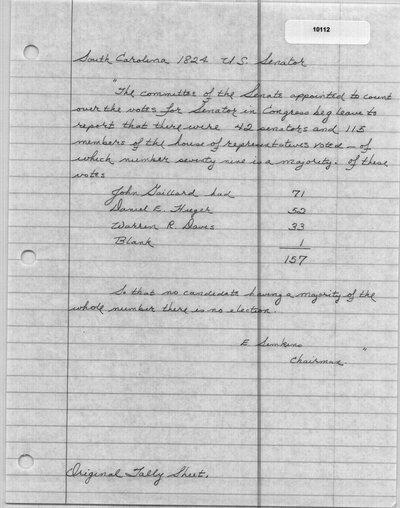 10112
South Carolina 1824 U.S. Senator
"The committee of the Senate appointed to count
over the votes for Senator in Congress beg leave to
report that there were 42 senators and 115
members of the house of representatives voted – of
which number seventy nine is a majority. Of these
votes
John Gaillard had 71
Daniel E. Huger 52
Warren R. Davis 33
Blank 1
157
So that no candidate having a majority of the
whole number there is no election.
E Simkins
Chairman "
Original Tally Sheet.